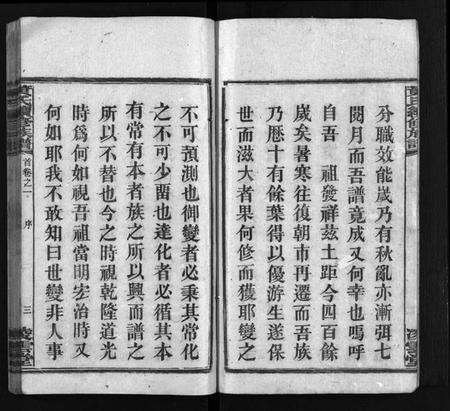 分職效能歲乃有秋亂亦漸弭七
閱月而吾譜竟成又何幸也嗚呼
自吾 祖發祥茲土距今四百餘
歲矣暑寒往復朝市再遷而吾族
乃歷十有餘葉得以優游生遂保
世而滋大者果何修而獲耶變之
不可預測也御變者必秉其常化
之不可少畱也達化者必循其本
有常有本者族之所以興而譜之
所以不替也今之時視乾隆道光
時爲何如視吾祖當明宏治時又
何如耶我不敢知曰世變非人事
黃氏續修族譜
首卷之一
序
三